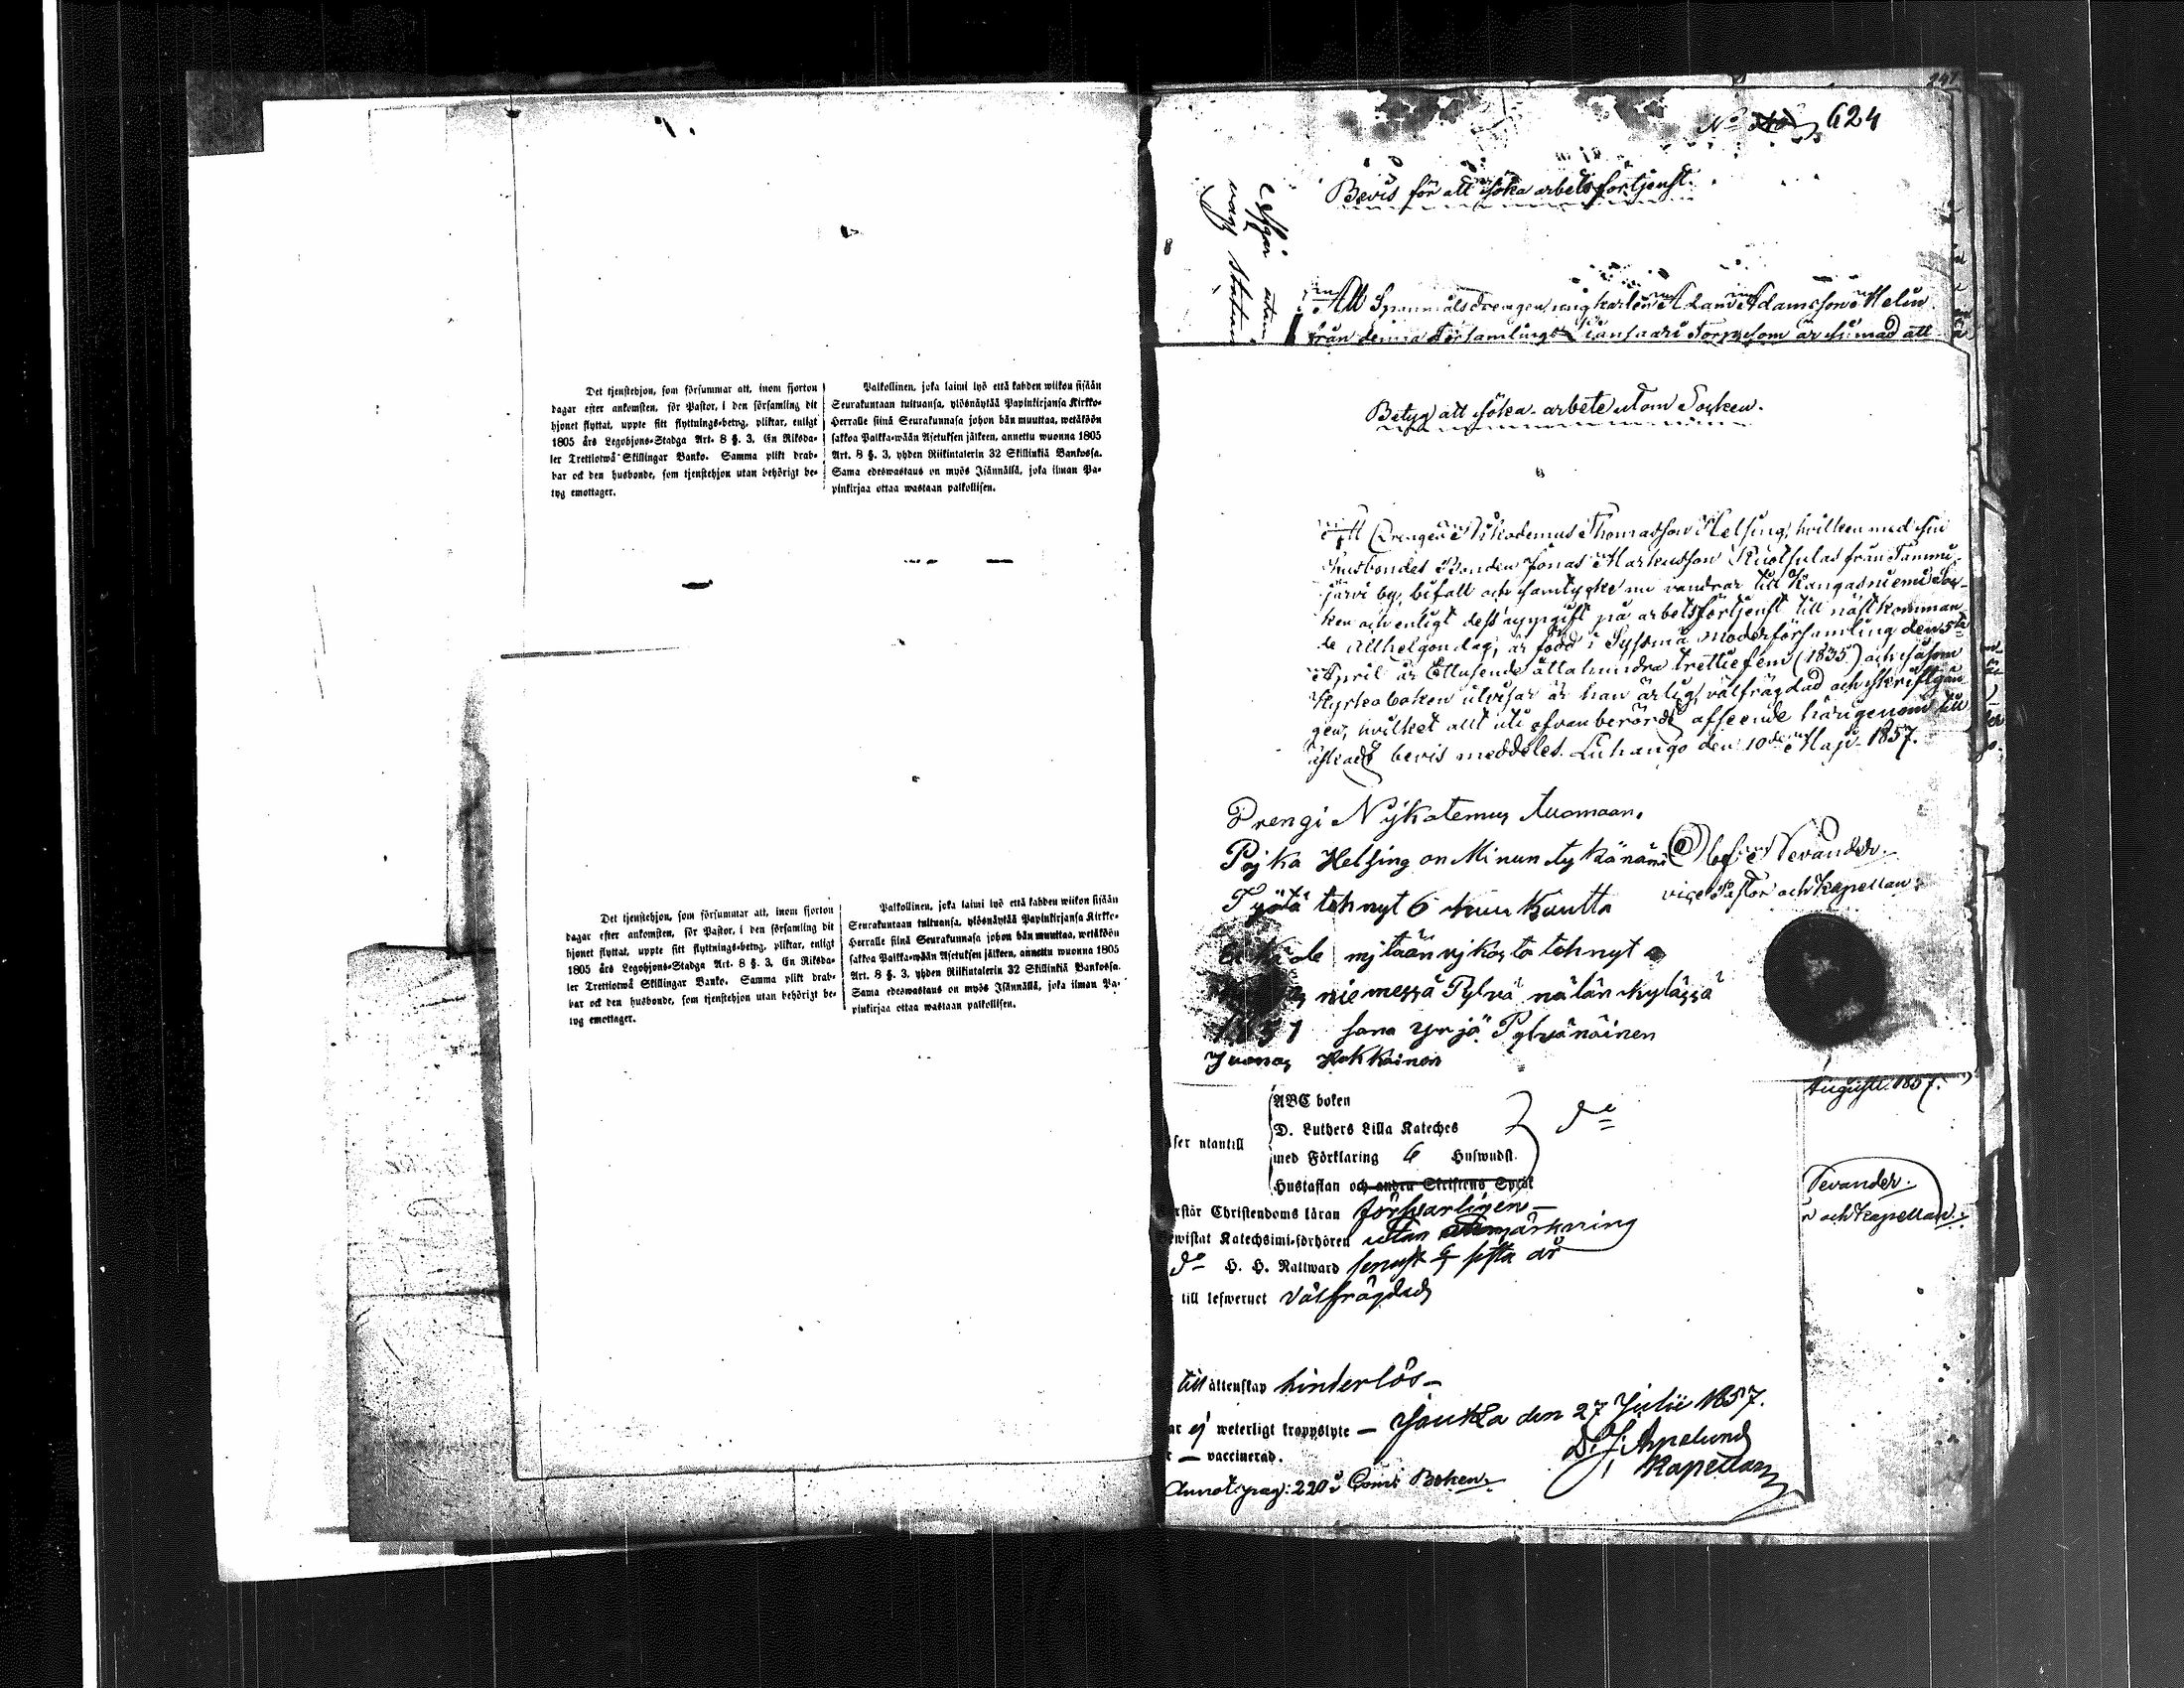 Det tjenstehjon, som försummar att, inom fjorton
dagar efter ankomsten, för Pastor, i den församling dit
hjonet flyttat, uppte sitt flyttnings-betyg, pliktar, enligt
1805 års Legohjons-Stadga Art. 8 §. 3. En Riksda-
ler Trettiotwå Skillingar Banko. Samma plikt drab-
bar ock den husbonde, som tjenstehjon utan behörigt be-
tyg emottager.
Palkollinen, joka laimi lyö että kahden wiikon sisään
Seurakuntaan tultuansa, ylösnäytää Papinkirjansa Kirkko-
Herralle siinä Seurakunnasa johon hän muuttaa, wetäköön
sakkoa Palkka-wään Asetuksen jälkeen, annettu wuonna 1805
Art. 8 §. 3, yhden Riikintalerin 32 Skillinkiä Bankossa.
Sama edeswastaus on myös Isännällä, joka ilman Pa-
pinkirjaa ottaa wastaan palkollisen.
Det tjenstehjon, som försummar att, inom fjorton
dagar efter ankomsten, för Pastor, i den församling dit
hjonet flyttat, uppte sitt flyttnings-betyg, pliktar, enligt
1805 års Legohjons-Stadga Art. 8 §. 3. En Riksda-
ler Trettiotwå Skillingar Banko. Samma plikt drab-
bar ock den husbonde, som tjenstehjon utan behörigt be-
tyg emottager.
Palkollinen, joka laimi lyö että kahden wiikon sisään
Seurakuntaan tultuansa, ylösnäytää Papinkirjansa Kirkko-
Herralle siinä Seurakunnasa johon hän muuttaa, wetäköön
sakkoa Palkka-wään Asetuksen jälkeen, annettu wuonna 1805
Art. 8 §. 3, yhden Riikintalerin 32 Skillinkiä Bankossa.
Sama edeswastaus on myös Isännällä, joka ilman Pa-
pinkirjaa ottaa wastaan palkollisen.
No 624
Bevis för att söka arbetsförtjenst.
Att Spannmålsdrengen ynglingkarlen Adamsson Melin
från denna Församlings Torp som är sinnad att
Betyg att söka arbete utom Socken.
Att Drengen Nikodemus Thomasson Helsing, hvilken med sin
husbondes Bonden Jonas Markusson Ruothulas från Tammi-
järvi by, bifall och samtycke nu vandrar till Kangasniemi Soc-
ken och enligt dess uppgift på arbetsförtjenst till nästkomman-
de Allhelgondag, är född i Sysmä Moderförsamling den 5te
April år Ettusende åttahundra trettiefem (1835) och såsom
Kyrkoboken utvisar är han ärlig, välfrägdad och skriftgån-
gen, hvilket allt uti ofvanberörde afseende härigenom till
äskadt bevis meddelas. Luhango den 10de Maji 1857.
Olof Nevander.
vice Pastor och Kapellan.
Drengi Nijkatemus tuomaan.
Pojka Helsing on Minun tykänäni
Työtä tehnyt 6 kuu Kautta
eikä ole mitään vikaa to tehnyt
niemessä Pylvä nälän kylässä
Jana Yrjö Pylvänäinen
Juonas Hokkainen
Augusti 1857.
Nevander.
och Kapellan.
ABC boken
D. Luthers Lilla Kateches
med Förklaring 6 Huswudst.
Hustaflan och andra Skriftens Språk
utantill
Christendoms läran försvarligen
Katechsimi-förhören utan anmärkning
do H. H. Nattward senast sista år
till lefwernet Välfrägdad
till ättenskap hinderlös
ej weterligt kroppslyte — Joutsa den 27 Julii 1857.
— vaccinerad.
D. J. Appelund
Kapellan
Annot. pag: 220 i Com: Boken